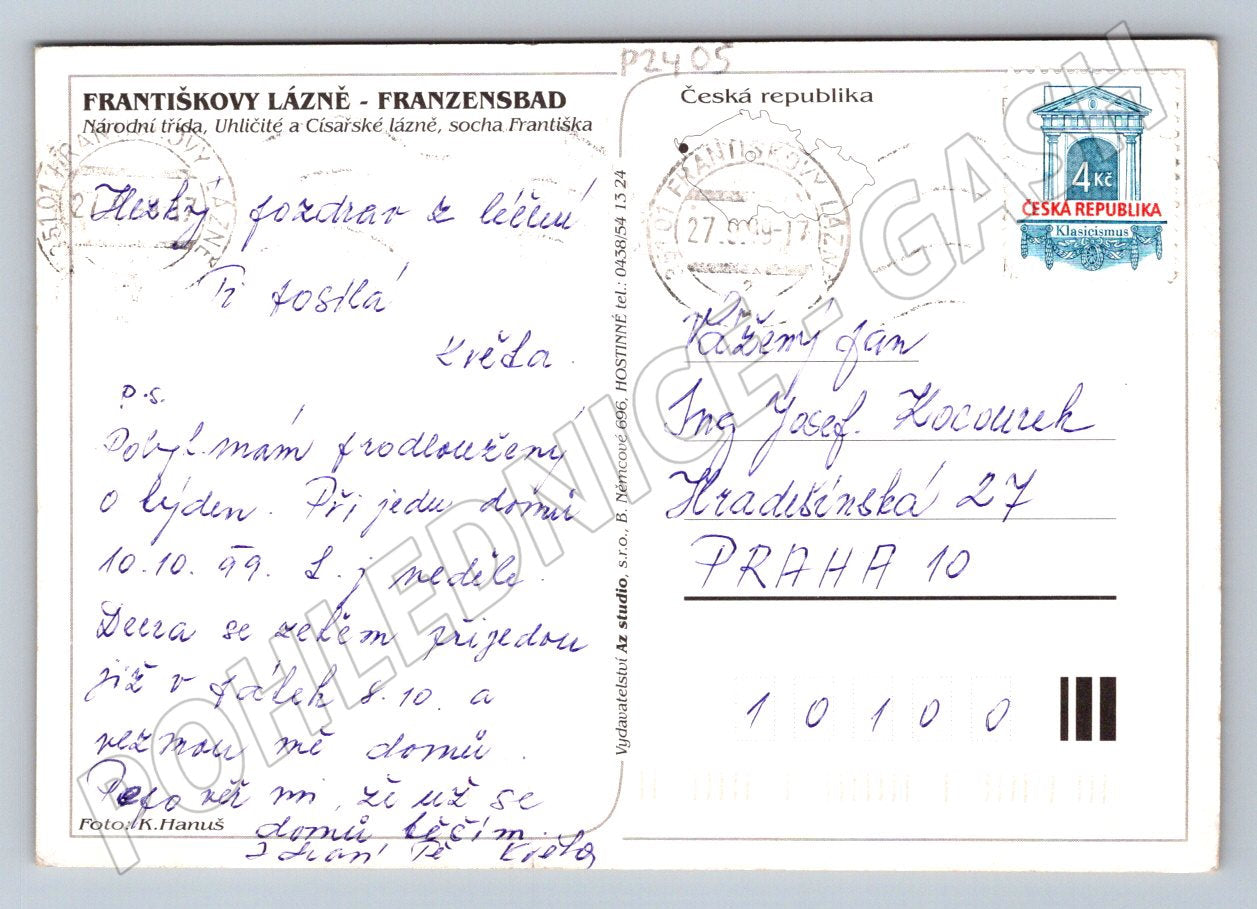 P2405
FRANTIŠKOVY LÁZNĚ - FRANZENSBAD
Národní třída, Uhličité a Císařské lázně, socha Františka
Hezký pozdrav z léčení
Ti posílá
Květa.
P.S.
Pobyt mám prodloužený
o týden. Přijedu domů
10.10.99. t. j neděle.
Dcera se zetěm přijedou
již v pátek 8.10. a
vezmou mě domů.
Pepo věř mi, že už se
domů těším.
Zdraví Tě Květa
Foto: K.Hanuš
Vydavatelství Az studio, s.r.o., B. Němcové 696, HOSTINNÉ tel.: 0438/54 13 24
Česká republika
351 01 FRANTIŠKOVY LÁZNĚ
27. 9.99-17
2
4 Kč
ČESKÁ REPUBLIKA
Klasicismus
Vážený pan
Ing Josef. Kocourek
Hradešínská 27
PRAHA 10
10100
POHLEDNICE - GASH